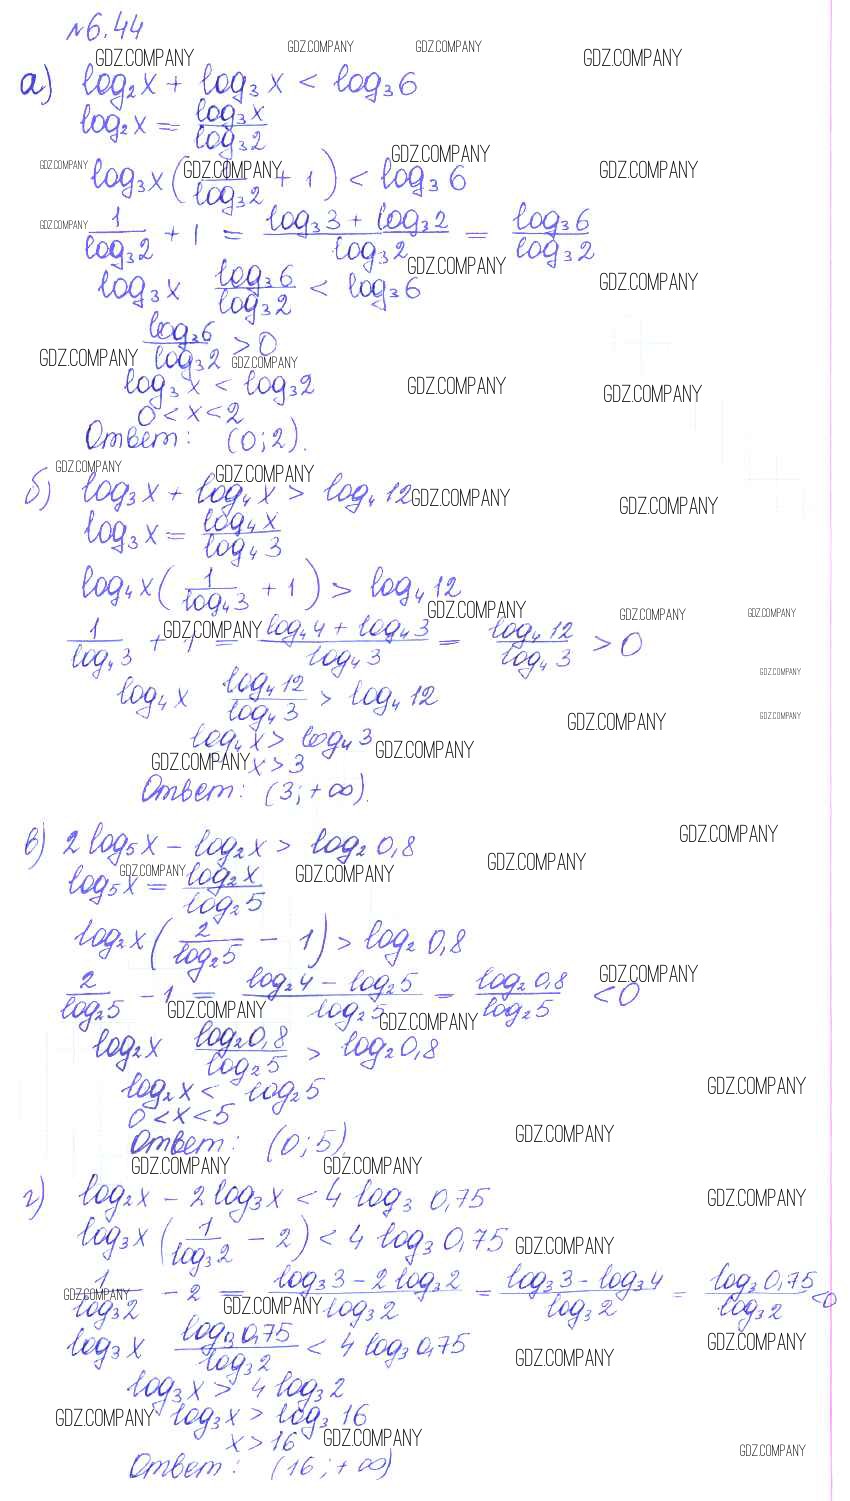 №6.44
GDZ.COMPANY GDZ.COMPANY GDZ.COMPANY GDZ.COMPANY
а) log₂x + log₃x < log₃6
log₂x = log₃x / log₃2
GDZ.COMPANY
GDZ.COMPANY GDZ.COMPANY GDZ.COMPANY
log₃x (1 / log₃2 + 1) < log₃6
GDZ.COMPANY
1 / log₃2 + 1 = (log₃3 + log₃2) / log₃2 = log₃6 / log₃2
GDZ.COMPANY GDZ.COMPANY
log₃x log₃6 / log₃2 < log₃6
log₃6 / log₃2 > 0
GDZ.COMPANY GDZ.COMPANY
log₃x < log₃2
GDZ.COMPANY GDZ.COMPANY
0 < x < 2
Ответ: (0; 2).
GDZ.COMPANY GDZ.COMPANY
б) log₃x + log₄x > log₄12
GDZ.COMPANY GDZ.COMPANY
log₃x = log₄x / log₄3
log₄x (1 / log₄3 + 1) > log₄12
GDZ.COMPANY GDZ.COMPANY GDZ.COMPANY
GDZ.COMPANY
1 / log₄3 + 1 = (log₄4 + log₄3) / log₄3 = log₄12 / log₄3 > 0
GDZ.COMPANY
log₄x log₄12 / log₄3 > log₄12
GDZ.COMPANY GDZ.COMPANY
log₄x > log₄3
GDZ.COMPANY
GDZ.COMPANY
x > 3
Ответ: (3; +∞).
GDZ.COMPANY
в) 2log₅x − log₂x > log₂0,8
GDZ.COMPANY GDZ.COMPANY GDZ.COMPANY
log₅x = log₂x / log₂5
log₂x (2 / log₂5 − 1) > log₂0,8
GDZ.COMPANY
2 / log₂5 − 1 = (log₂4 − log₂5) / log₂5 = log₂0,8 / log₂5 < 0
GDZ.COMPANY GDZ.COMPANY
log₂x log₂0,8 / log₂5 > log₂0,8
log₂x < log₂5
GDZ.COMPANY
0 < x < 5
Ответ: (0; 5).
GDZ.COMPANY
GDZ.COMPANY GDZ.COMPANY
г) log₂x − 2log₃x < 4 log₃0,75
GDZ.COMPANY
log₃x (1 / log₃2 − 2) < 4 log₃0,75
GDZ.COMPANY
1 / log₃2 − 2 = (log₃3 − 2log₃2) / log₃2 = (log₃3 − log₃4) / log₃2 = log₃0,75 / log₃2 < 0
GDZ.COMPANY GDZ.COMPANY
log₃x log₃0,75 / log₃2 < 4 log₃0,75
GDZ.COMPANY GDZ.COMPANY
log₃x > 4 log₃2
GDZ.COMPANY
log₃x > log₃16
x > 16
GDZ.COMPANY GDZ.COMPANY
Ответ: (16; +∞)